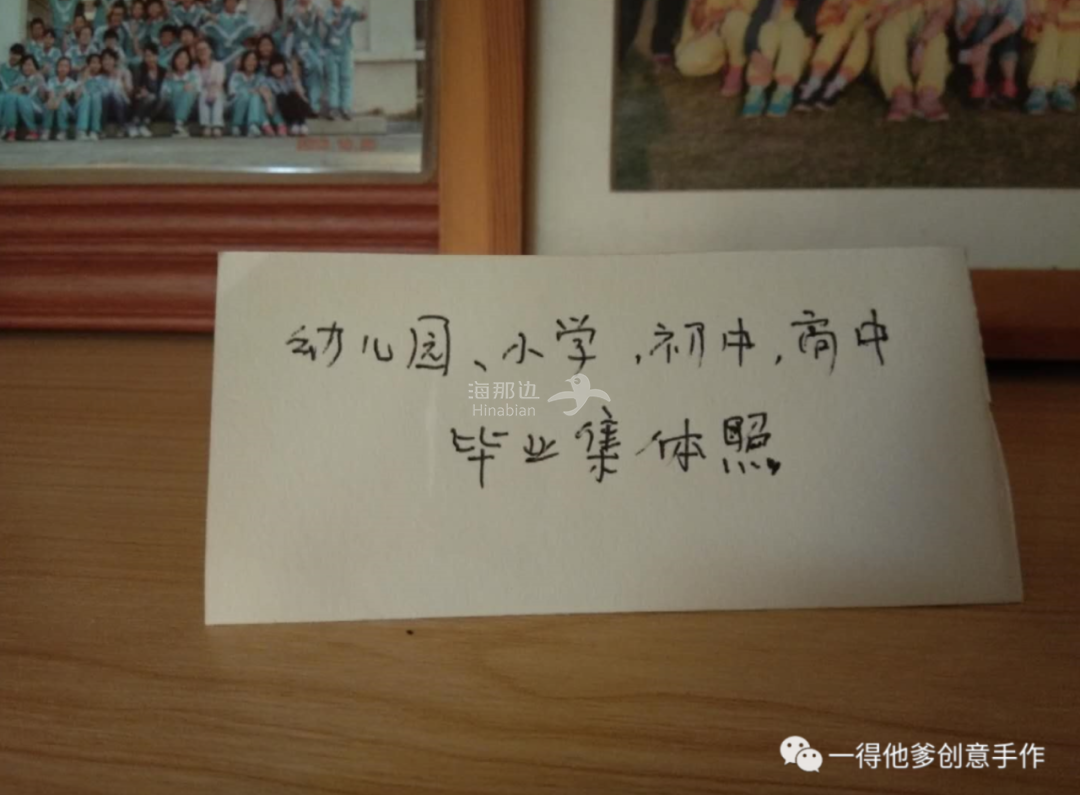 幼儿园、小学,初中,高中
海那边
Hinabian
毕业集体照
一得他爹创意手作